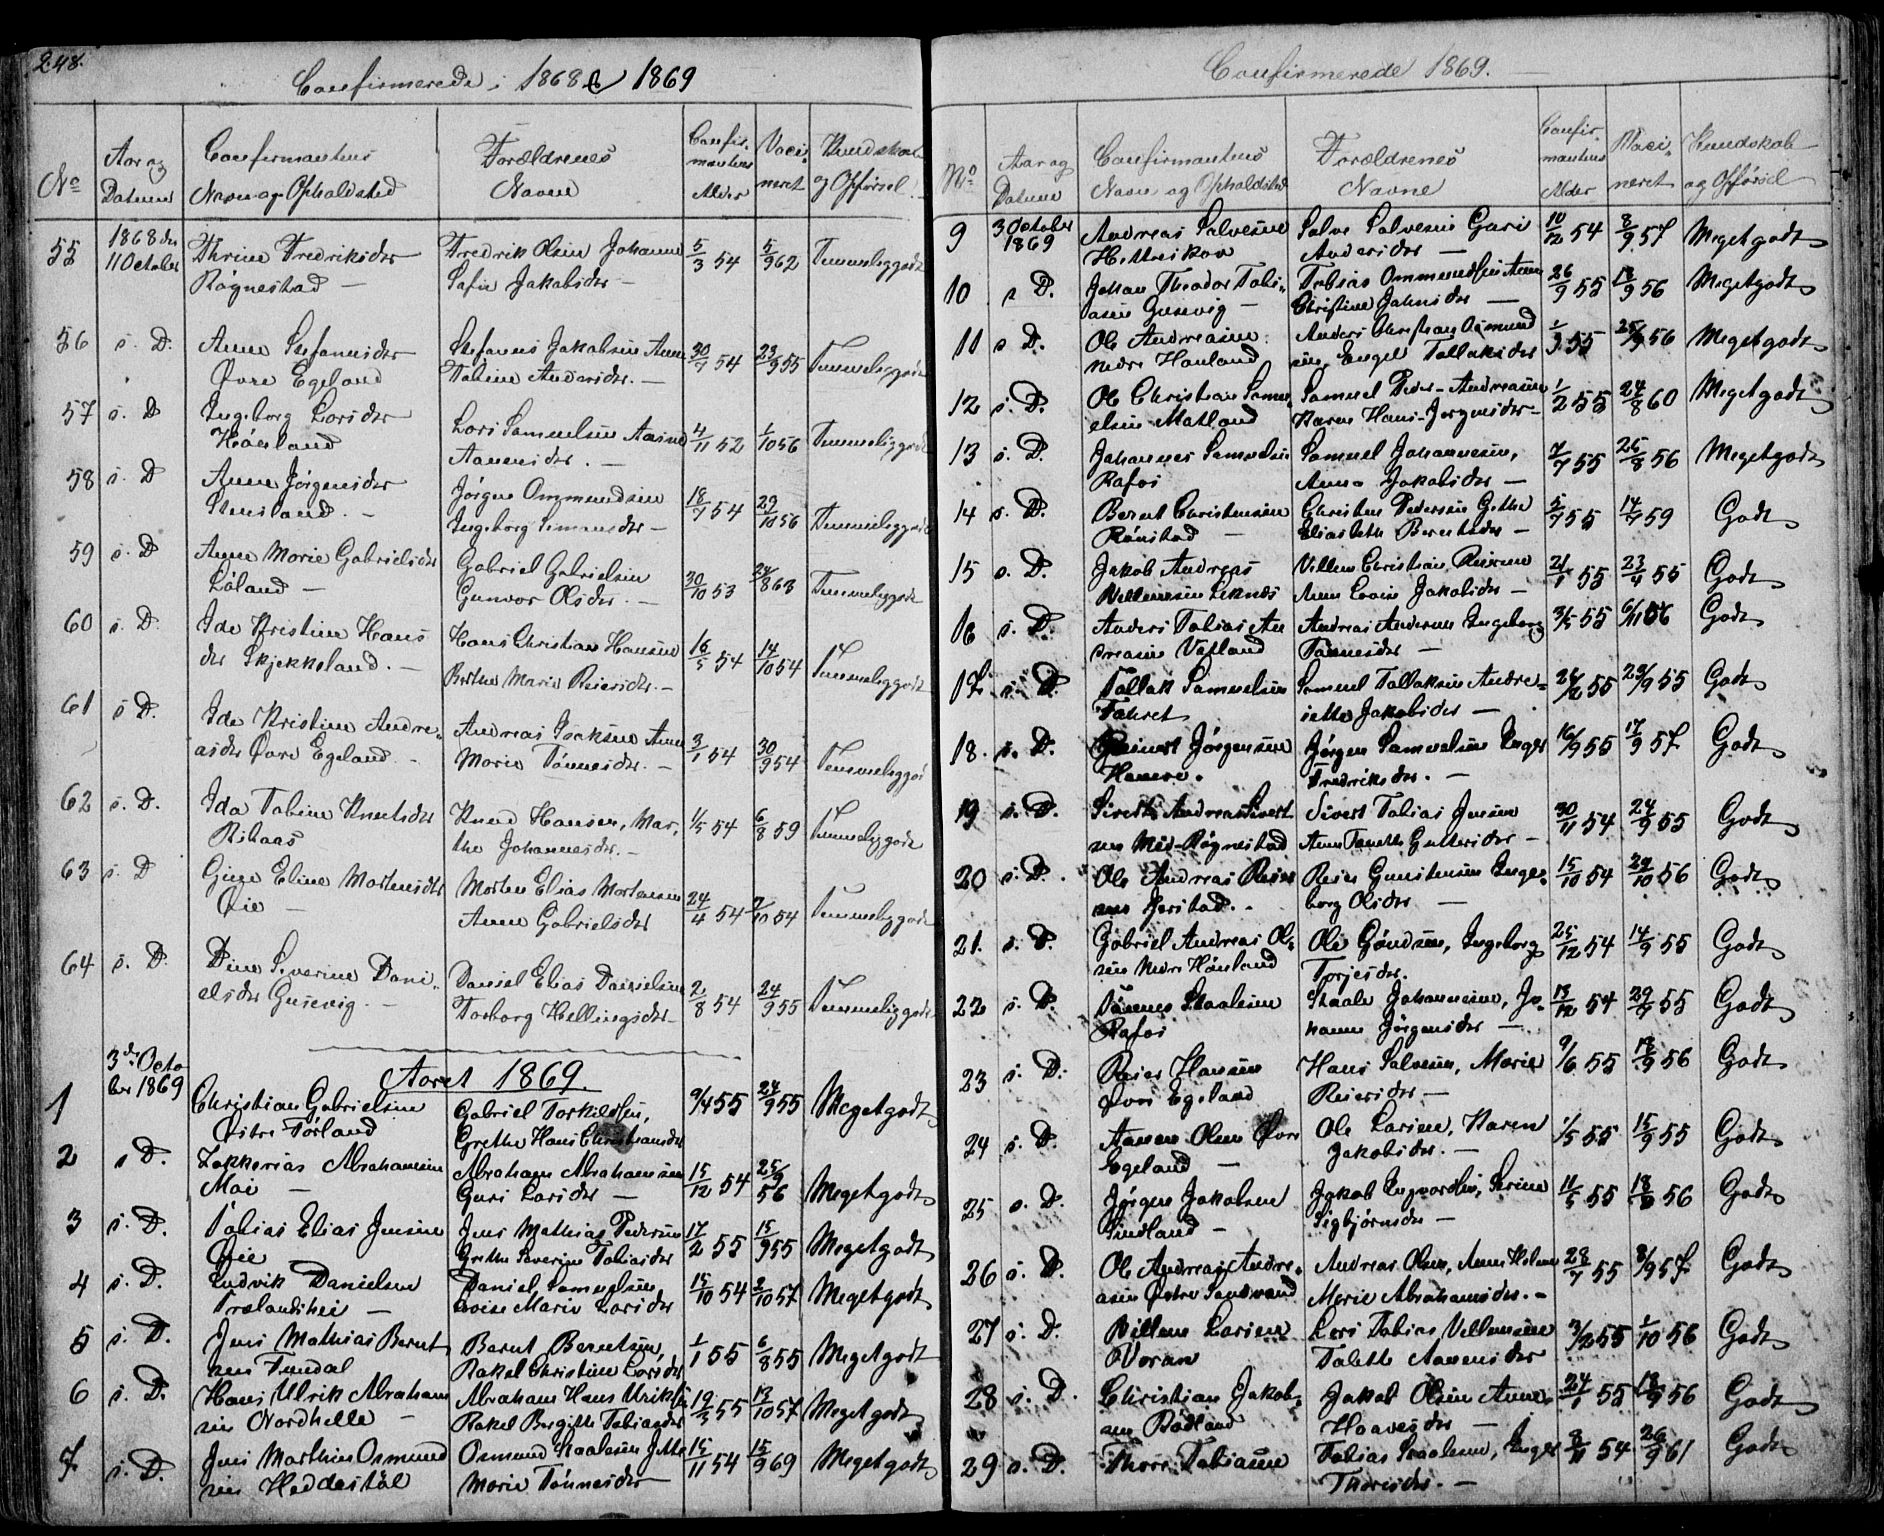 248.
Confirmerede i 1868 & 1869
No Aar og Datum Confirmantens Navn og Opholdsted Forældrenes Navne Confirmantens Alder Vaccineret Kundskab og Opførsel
55 1868 den 11 October Thrine Fredriksdtr Røgnestad Fredrik Olsen Johanne Sofie Jakobsdtr 5/3 54 5/9 62 Temmeliggodt
56 s. D. Anne Stefansdtr Øvre Egeland Stefanus Jakobsen Anne Tobine Andersdtr. 30/7 54 23/9 55 Temmeliggodt
57 s. D Ingeborg Larsdtr Hønland Lars Samuelsen Aasne Aanensdtr. 4/11 52 1/10 56 Temmeliggodt
58 s. D Anne Jørgensdtr Stensland. Jørgen Ommundsen Ingeborg Simonsdtr 18/7 54 29/10 56 Temmeliggodt
59 s. D Anne Marie Gabrielsdtr Løland Gabriel Gabrielsen Gunvor Olsdtr. 30/10 53 24/8 63 Temmeliggodt
60 s. D. Ide Kristine Hansdtr Skjekkeland. Hans Christian Hansen Berthe Marie Reiersdtr. 16/5 54 14/10 54 Temmeliggodt
61 s D. Ide Kristine Andreasdtr Øvre Egeland. Andreas Isaksen Anne Marie Tønnesdtr. 3/1 54 30/9 54 Temmeliggodt
62 s. D. Ida Tobine Knutsdtr Birkaas Knud Hansen, Marthe Johannesdtr. 1/5 54 6/8 59 Temmeliggodt
63 s. D Gine Eline Mortensdtr Øie Morten Elias Mortensen Anne Gabrielsdtr 24/4 54 7/10 54 Temmeliggodt
64 s. D. Dine Severine Danielsdtr Gusevig. Daniel Elias Danielsen Torborg Hellingsdtr 2/8 54 24/9 55 Temmeliggodt
Aaret 1869.
1 3de October 1869 Christian Gabrielsen Østre Førland Gabriel Torkildsen, Grethe Hans Christiansdtr 9/4 55 24/9 55 Megetgodt
2 s D. Zakkarias Abrahamsen Moi Abraham Abrahamsen Guri Larsdtr 15/12 54 25/9 56 Megetgodt
3 s. D. Tobias Elias Jensen Øie Jens Mathias Pedersen Grethe Severine Tobiasdtr 17/2 55 15/9 55 Megetgodt
4 s. D. Ludvik Danielsen Frælandshei Daniel Samuelsen Lovise Marie Larsdtr 15/10 54 2/10 57 Megetgodt
5 s. D. Jens Mathias Berntsen Fundal Bernt Berntsen, Rakel Christine Larsdtr 1/1 55 6/8 55 Megetgodt
6 s. D. Hans Ulrik Abrahamsen Nordhelle Abraham Hans Ulriksen Rakel Bergitte Tobiasdtr 19/3 55 13/10 57 Megetgodt
7 s. D. Jens Marthin Osmundsen Heddestøl Osmund Staalesen Jette Marie Tønnesdtr 15/11 54 15/9 69 Megetgodt
Confirmerede 1869.
No Aar og Datum Confirmantens Navn og Opholdsted Forældrenes Navne Confirmantens Alder Vaccineret Kundskab og Opførsel
9 3 October 1869 Andreas Salvesen Hittreskov Salve Salvesen Guri Andersdtr 10/12 54 8/9 57 Megetgodt
10 s D. Johan Theodor Tobiasen Gusevig Tobias Ommundsen Anne Christine Jahnsdtr 26/9 55 18/9 56 Megetgodt
11 s D. Ole Andreasen nedre Hanland Anders Christian Osmundsen, Engel Tallaksdtr 1/3 55 25/9 56 Megetgodt
12 s. D. Ole Christian Samuelsen Matland Samuel Peder Andreasen Karen Hans-Jørgensdtr 1/2 55 24/8 60 Megetgodt
13 s. D. Johannes Samuelsen Rafos Samuel Johannesen, Anna Jakobsdtr 7/7 55 25/8 56 Megetgodt
14 s. D. Bernt Christensen Rønstad Christen Pedersen Githa Elisabeth Berntsdtr 5/7 55 14/7 59 Godt
15 s. D. Jakob Andreas Villumsen Liknes Villum Christian Reiersen Anne Lovise Jakobsdtr 21/1 55 23/4 55 Godt
16 s. D. Anders Tobias Andreasen Vatland Andreas Andersen Ingeborg Tønnesdtr 3/5 55 6/11 56 Godt
17. s. D. Tallak Samuelsen Samuel Tallaksen Andresette Jakobsdtr 24/2 55 23/9 55 Godt
18. s. D. Jørgensen Jørgen Samuelsen Inger Fredriksdtr. 16/9 55 17/9 57 Godt
19 s. D. Sivert Andreas Sivertsen Med-Røgnestad Sivert Tobias Jensen Anne Tonette Guttersdtr 30/11 54 24/9 55 Godt
20 s. D. Ole Andreas Reiersen Jerstad. Reier Gunstensen Ingeborg Olsdtr 15/10 54 29/10 56 Godt
21. s. D. Gabriel Andreas Olsen nedre Hønland Ole Gundersen, Ingeborg Torjesdtr. 25/12 54 14/9 55 Godt
22 s. D. Tønnes Staalesen Rafos Staale Johannesen, Johanne Jørgensdtr 13/12 54 29/7 55 Godt
23 s. D. Reier Hansen Øvre Egeland Hans Salvesen, Marie Reiersdtr. 9/6 55 18/9 56 Godt
24 s. D. Aanen Olsen Øvre Egeland Ole Larsen, Karen Jakobsdtr. 1/5 55 15/9 55 Godt
25 s. D. Jørgen Jakobsen Sindland Jakob Ingvordsen, Serine Sigbjørnsdtr 11/5 55 18/9 56 Godt
26 s. D. Ole Andreas Andreasen Østre Sandvand Andreas Olsen, Anne Helene Marie Abrahamsdtr. 28/7 55 8/9 57 Godt
27 s. D. Villum Larsen Voran Lars Tobias Villumsen Talette Aanensdtr 3/2 55 1/10 56 Godt
28 s. D. Christian Jakobsen Rødland Jakob Olsen Anne Haavesdtr 24/1 55 18/9 56 Godt
29 s. D. Thore Tobiasen Tobias Staalesen, Inger Thoresdtr. 8/11 54 26/9 61 Godt